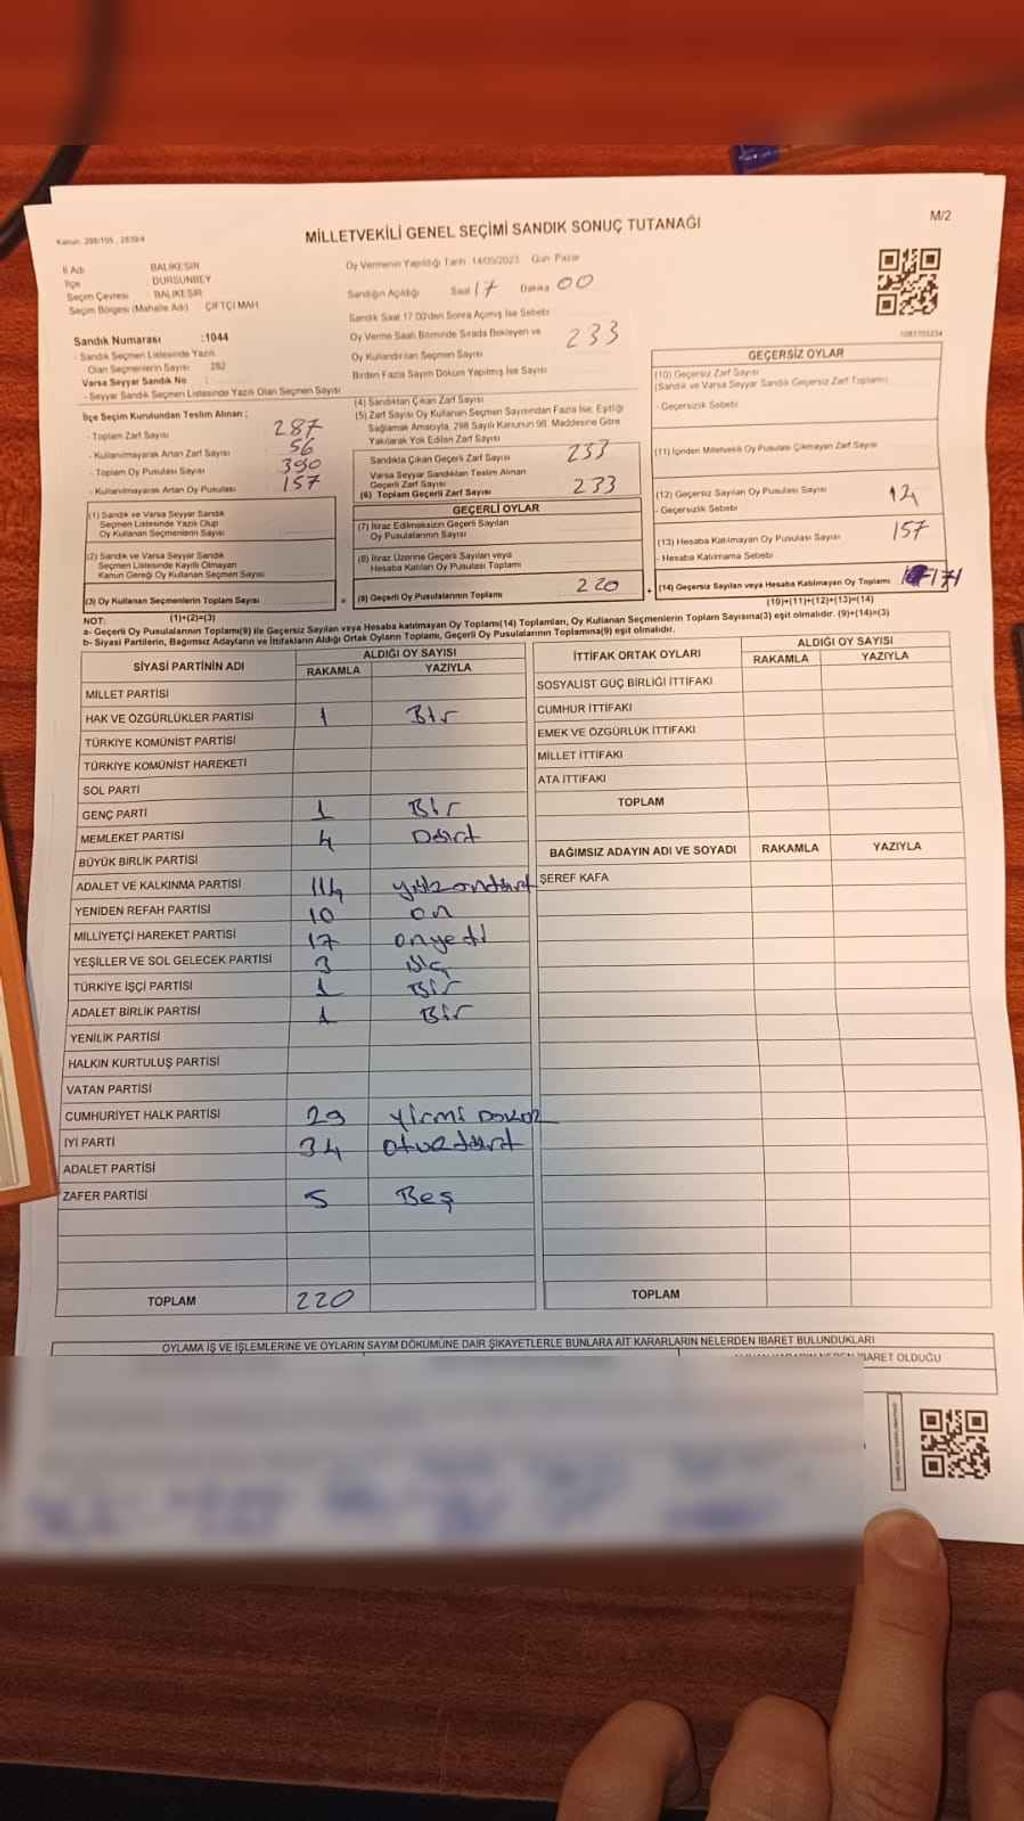 Kanun: 298/105 , 2839/4
MİLLETVEKİLİ GENEL SEÇİMİ SANDIK SONUÇ TUTANAĞI
M/2
İl Adı BALIKESİR
İlçe DURSUNBEY
Seçim Çevresi : BALIKESİR
Seçim Bölgesi (Mahalle Adı) ÇİFTÇİ MAH
Sandık Numarası :1044
- Sandık Seçmen Listesinde Yazılı
Olan Seçmenlerin Sayısı 282
Varsa Seyyar Sandık No :
- Seyyar Sandık Seçmen Listesinde Yazılı Olan Seçmen Sayısı
İlçe Seçim Kurulundan Teslim Alınan ;
- Toplam Zarf Sayısı 287
- Kullanılmayarak Artan Zarf Sayısı 56
- Toplam Oy Pusulası Sayısı 390
- Kullanılmayarak Artan Oy Pusulası 157
(1) Sandık ve Varsa Seyyar Sandık
Seçmen Listesinde Yazılı Olup
Oy Kullanan Seçmenlerin Sayısı
(2) Sandık ve Varsa Seyyar Sandık
Seçmen Listesinde Kayıtlı Olmayan
Kanun Gereği Oy Kullanan Seçmen Sayısı
(3) Oy Kullanan Seçmenlerin Toplam Sayısı
Oy Vermenin Yapıldığı Tarih :14/05/2023 Gün Pazar
Sandığın Açıldığı Saat 17 Dakika 00
Sandık Saat 17.00'den Sonra Açılmış İse Sebebi
Oy Verme Saati Bitiminde Sırada Bekleyen ve
Oy Kullandırılan Seçmen Sayısı 233
Birden Fazla Sayım Döküm Yapılmış İse Sayısı
(4) Sandıktan Çıkan Zarf Sayısı
(5) Zarf Sayısı Oy Kullanan Seçmen Sayısından Fazla İse, Eşitliği
Sağlamak Amacıyla, 298 Sayılı Kanunun 98. Maddesine Göre
Yakılarak Yok Edilen Zarf Sayısı
Sandıkta Çıkan Geçerli Zarf Sayısı 233
Varsa Seyyar Sandıktan Teslim Alınan
Geçerli Zarf Sayısı
(6) Toplam Geçerli Zarf Sayısı 233
GEÇERLİ OYLAR
(7) İtiraz Edilmeksizin Geçerli Sayılan
Oy Pusulalarının Sayısı
(8) İtiraz Üzerine Geçerli Sayılan veya
Hesaba Katılan Oy Pusulası Toplamı
= (9) Geçerli Oy Pusulalarının Toplamı 220
GEÇERSİZ OYLAR
(10) Geçersiz Zarf Sayısı
(Sandık ve Varsa Seyyar Sandık Geçersiz Zarf Toplamı)
- Geçersizlik Sebebi
(11) İçinden Milletvekili Oy Pusulası Çıkmayan Zarf Sayısı
(12) Geçersiz Sayılan Oy Pusulası Sayısı 12
- Geçersizlik Sebebi
(13) Hesaba Katılmayan Oy Pusulası Sayısı 157
- Hesaba Katılmama Sebebi
+ (14) Geçersiz Sayılan veya Hesaba Katılmayan Oy Toplamı 171
(10)+(11)+(12)+(13)=(14)
NOT: (1)+(2)=(3)
a- Geçerli Oy Pusulalarının Toplamı(9) ile Geçersiz Sayılan veya Hesaba katılmayan Oy Toplamı(14) Toplamları, Oy Kullanan Seçmenlerin Toplam Sayısına(3) eşit olmalıdır. (9)+(14)=(3)
b- Siyasi Partilerin, Bağımsız Adayların ve İttifakların Aldığı Ortak Oyların Toplamı, Geçerli Oy Pusulalarının Toplamına(9) eşit olmalıdır.
SİYASİ PARTİNİN ADI
ALDIĞI OY SAYISI
RAKAMLA YAZIYLA
MİLLET PARTİSİ
HAK VE ÖZGÜRLÜKLER PARTİSİ 1 Bir
TÜRKİYE KOMÜNİST PARTİSİ
TÜRKİYE KOMÜNİST HAREKETİ
SOL PARTİ
GENÇ PARTİ 1 Bir
MEMLEKET PARTİSİ 4 Dört
BÜYÜK BİRLİK PARTİSİ
ADALET VE KALKINMA PARTİSİ 114 yüzondört
YENİDEN REFAH PARTİSİ 10 on
MİLLİYETÇİ HAREKET PARTİSİ 17 onyedi
YEŞİLLER VE SOL GELECEK PARTİSİ 3 üç
TÜRKİYE İŞÇİ PARTİSİ 1 Bir
ADALET BİRLİK PARTİSİ 1 Bir
YENİLİK PARTİSİ
HALKIN KURTULUŞ PARTİSİ
VATAN PARTİSİ
CUMHURİYET HALK PARTİSİ 29 Yirmi Dokuz
İYİ PARTİ 34 otuzdört
ADALET PARTİSİ
ZAFER PARTİSİ 5 Beş
TOPLAM 220
İTTİFAK ORTAK OYLARI
ALDIĞI OY SAYISI
RAKAMLA YAZIYLA
SOSYALİST GÜÇ BİRLİĞİ İTTİFAKI
CUMHUR İTTİFAKI
EMEK VE ÖZGÜRLÜK İTTİFAKI
MİLLET İTTİFAKI
ATA İTTİFAKI
TOPLAM
BAĞIMSIZ ADAYIN ADI VE SOYADI RAKAMLA YAZIYLA
ŞEREF KAFA
TOPLAM
OYLAMA İŞ VE İŞLEMLERİNE VE OYLARIN SAYIM DÖKÜMÜNE DAİR ŞİKAYETLERLE BUNLARA AİT KARARLARIN NELERDEN İBARET BULUNDUKLARI
İBARET OLDUĞU